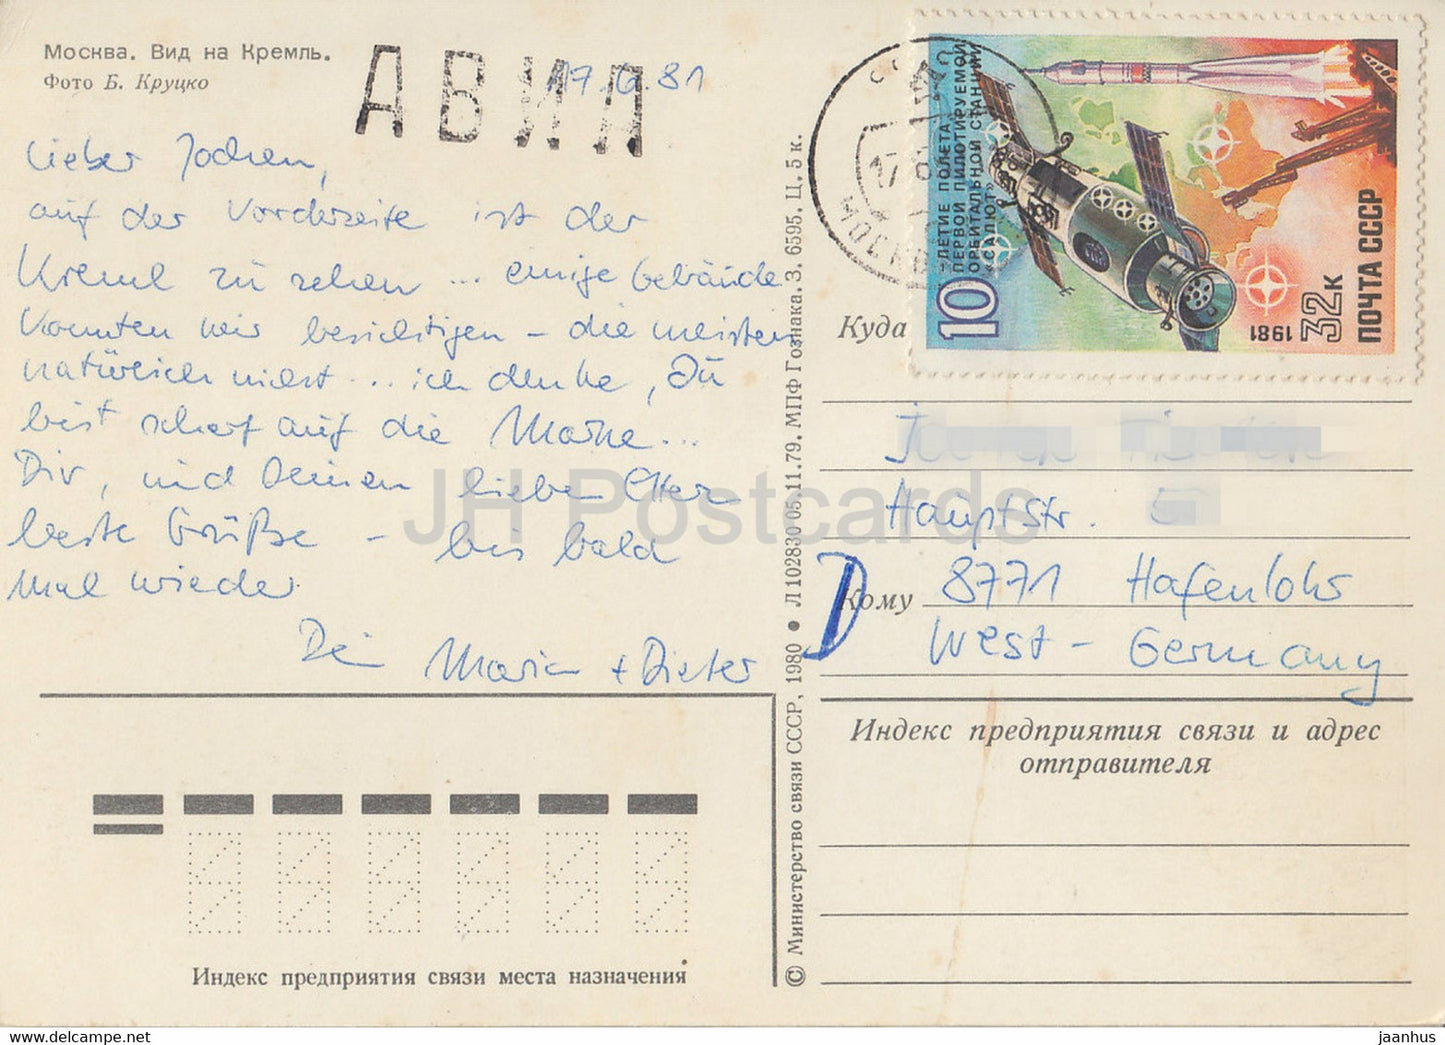 Москва. Вид на Кремль.
Фото Б. Круцко
АВИА
17.6.81
Lieber Jochen,
auf der Vorderseite ist der
Kreml zu sehen ... einige Gebäude
konnten wir besichtigen – die meisten
natürlich nicht ... ich denke, Du
bist scharf auf die Marke ...
Dir, und Deinen lieben Eltern
beste Grüße – bis bald
mal wieder
Dein Maria + Dieter
Индекс предприятия связи места назначения
© Министерство связи СССР, 1980 ● Л 102830 05.11.79. МПФ Гознака. З. 6595. Ц. 5 к.
10
-ЛЕТИЕ ПОЛЕТА
ПЕРВОЙ ПИЛОТИРУЕМОЙ
ОРБИТАЛЬНОЙ СТАНЦИИ
«САЛЮТ»
1981
32к
ПОЧТА СССР
МОСКВА
17
Куда
Hauptstr. 5
D
Кому
8771 Hafenlohr
West-Germany
Индекс предприятия связи и адрес
отправителя
JH Postcards
www.delcampe.net
jaanhus